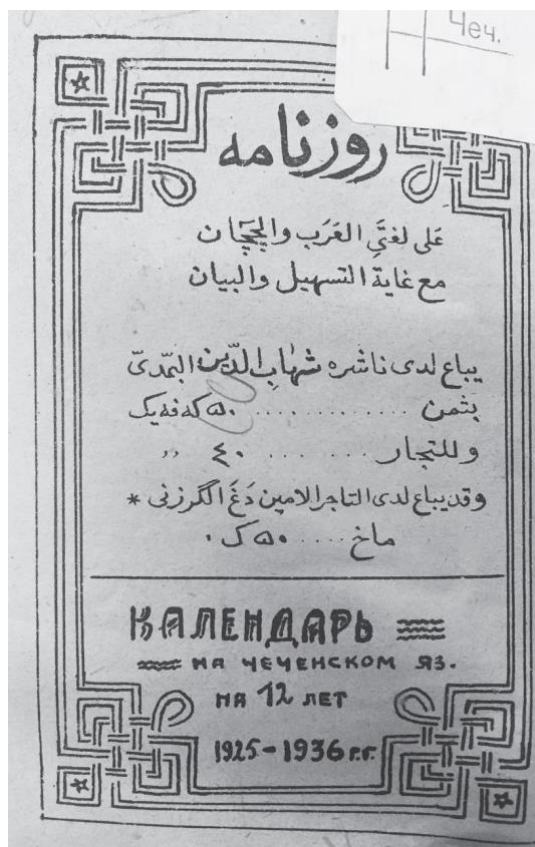 Чеч.
روزنامه
عَلى لغتَيِ العَرَب والچچان
مع غاية التسهيل والبيان
يباع لدى ناشره شهٰاب الدّين
بثمن .......... ٥٠ که فه یک
وللتجار ....... ٤٠ ״
وقد يباع لدى التاجر الامين دَغَ الگرزنی *
ماخ ..... ٥٠ ک٠
КАЛЕНДАРЬ
НА ЧЕЧЕНСКОМ ЯЗ.
НА 12 ЛЕТ
1925-1936 г.г.